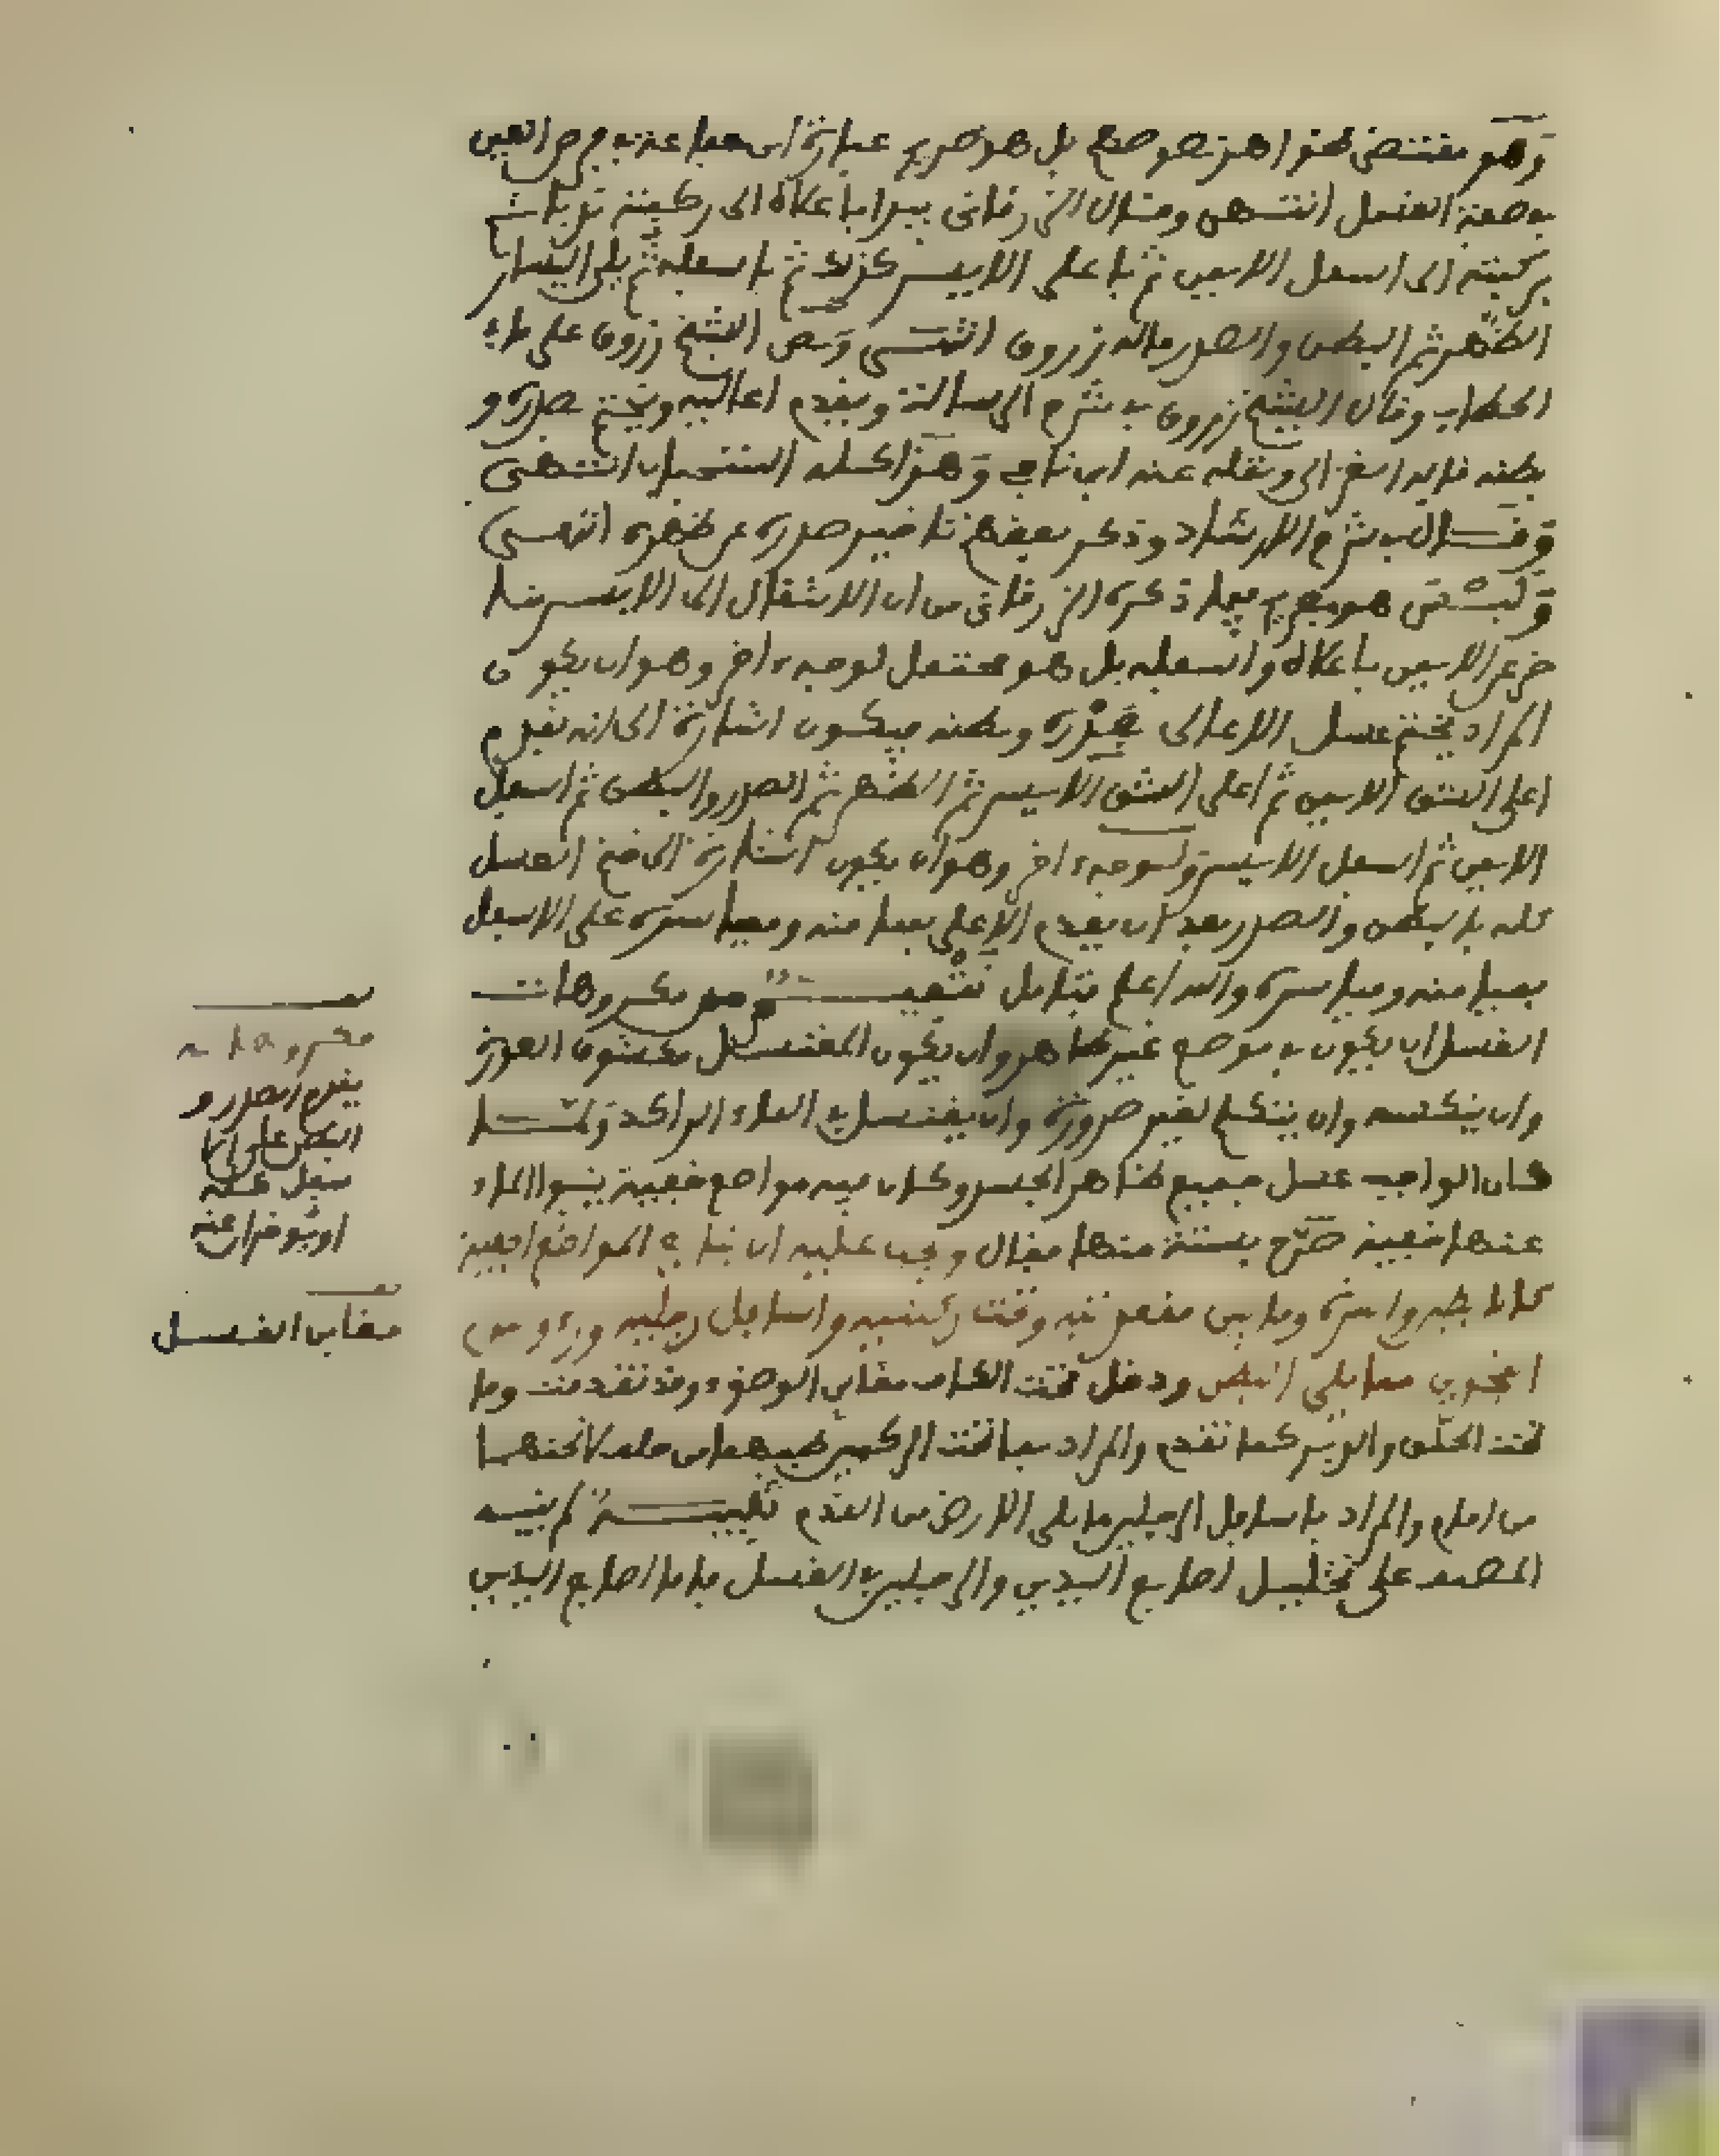 وهو مقتضى ظواهر نصوصهم بل هو صريح عبارة ابن جماعة في فرض العين
في صفة الغسل انتهى وقال الزرقاني يبدأ بأعلاه الى ركبته ثم
بركبته الى اسفل الايمن ثم باعلى الايسر كذلك ثم باسفله ثم يلي اليسار
الظهر ثم البطن والصدر قاله زروق انتهى ونص الشيخ زروق على ما في
الحطاب وقال الشيخ زروق في شرح الرسالة ويقدم اعاليه ويختم بصدره و
بطنه قاله الغزالي ونقله عنه ابن ناجي وهذا كله استحباب انتهى
وقال في شرح الارشاد وذكر بعضهم تاخير صدره عن ظهره انتهى
وليس هو صريح فيما ذكره الزرقاني من ان الانتقال الى الايسر متا
خر عن الايمن باعلاه واسفله بل هو محتمل لوجه ءاخر وهو ان يكون
المراد يختم غسل الاعالى بصدره وبطنه فيكون اشارة الى انه يقدم
اعلى الشق الايمن ثم اعلى الشق الايسر ثم الظهر ثم الصدر والبطن ثم اسفل
الايمن ثم اسفل الايسر ولوجه ءاخر وهو ان يكون اشارة الى ختم الغسل
كله بالبطن والصدر بعد ان يقدم الاعلى بميامنه ومياسره على الاسفل
بميامنه ومياسره والله اعلم فتامل تتميم من مكروهات
الغسل ان يكون في موضع غير طاهر وان يكون المغتسل مكشوف العورة
وان ينكسه وان يتكلم لغير ضرورة وان يغتسل في الماء الراكد ولما
كان الواجب غسل جميع ظاهر الجسد وكان فيه مواضع خفية ينبو الماء
عنها خفية صرح بستة منها فقال وجب عليه ان يتابع المواضع الخفية
كالابط والسرة وما بين مقعدتيه وتحت ركبتيه واسافل رجليه ورءوس
مما يلي البطن ودخل تحت الكاف مغابن الوضوء وقد تقدمت وما
تحت الحلق والوتر كما تقدم والمراد بما تحت الركبتين طيهما من خلف لا تحتهما
من امام والمراد باسافل الرجلين ما يلي الارض من القدم تنبيه لم ينبه
المصنف على تخليل اصابع اليدين والرجلين في الغسل فاما اصابع اليدين
قف
مكروهاته
يقدم الصدر و
البطن على الا
سفل
او يؤخران عنه
قف
مغابن الغسل